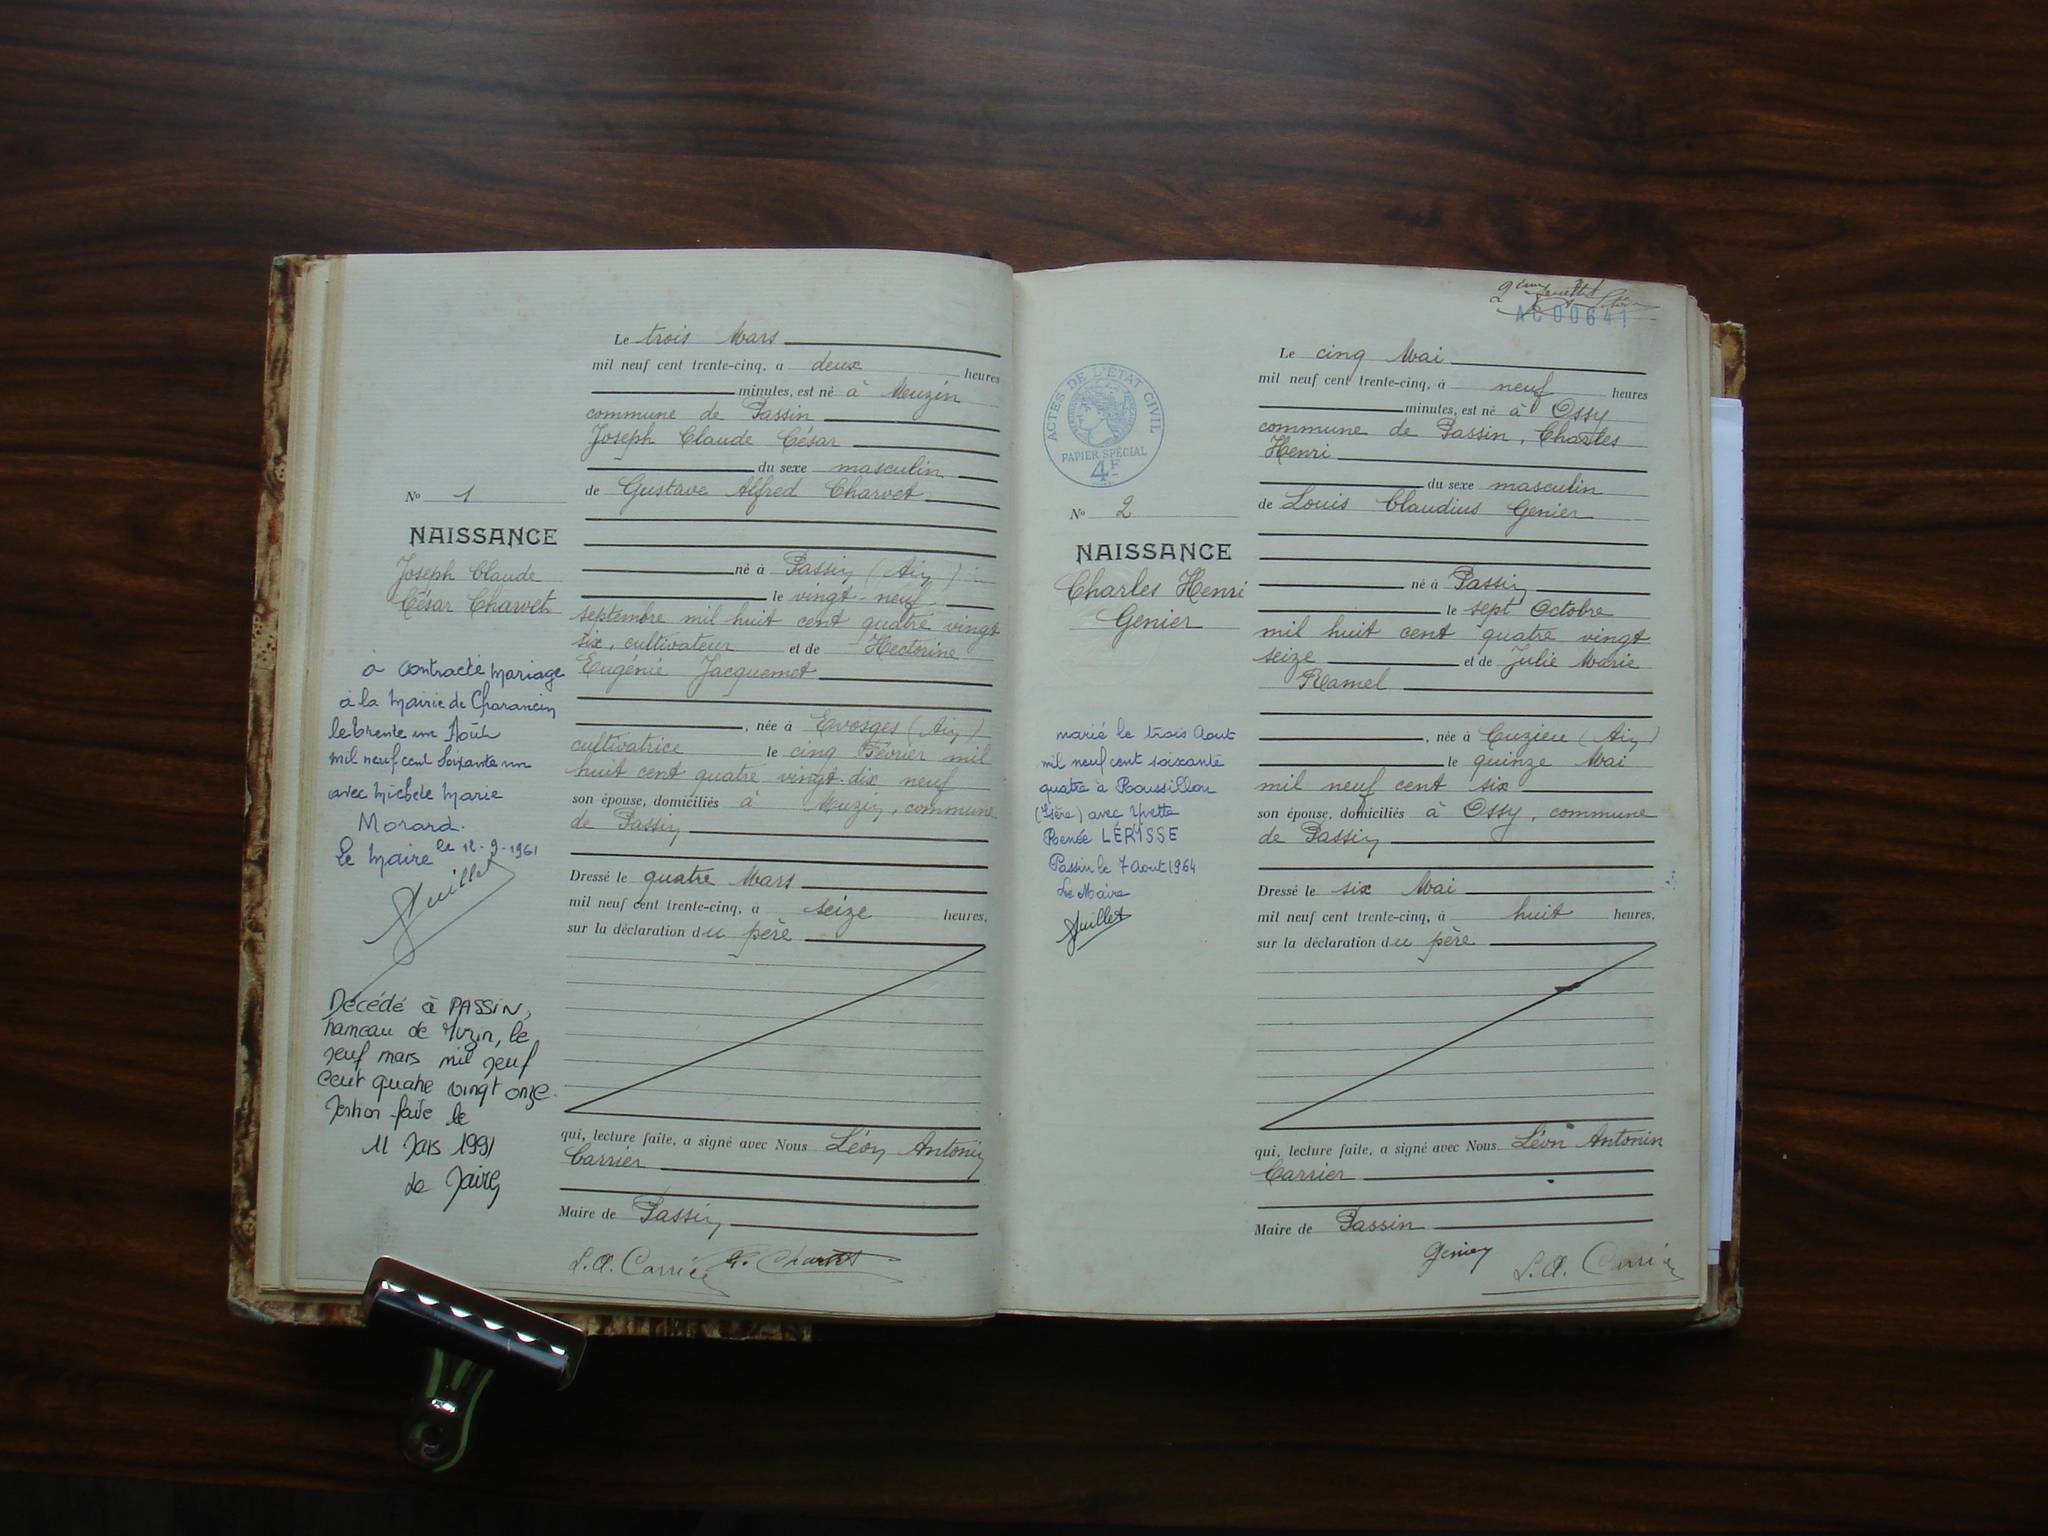 Le trois Mars
mil neuf cent trente-cinq, à deux heures
minutes, est né à Muzin
commune de Passin
Joseph Claude César
du sexe masculin
de Gustave Alfred Charvet
né à Passin (Ain)
le vingt-neuf
septembre mil huit cent quatre vingt
six, cultivateur et de Hectorine
Eugénie Jacquemet
, née à Evosges (Ain)
cultivatrice le cinq Février mil
huit cent quatre vingt-dix neuf
son épouse, domiciliés à Muzin, commune
de Passin
Dressé le quatre Mars
mil neuf cent trente-cinq, à seize heures,
sur la déclaration du père
qui, lecture faite, a signé avec Nous Léon Antonin
Carrier
Maire de Passin
L. A. Carrier G. Charvet
No 1
NAISSANCE
Joseph Claude
César Charvet
à contracté mariage
à la Mairie de Charancin
le trente un Août
mil neuf cent soixante un
avec Michele Marie
Morard.
Le Maire le 12-9-1961
Juillet
Décédé à PASSIN,
hameau de Muzin, le
neuf mars mil neuf
cent quatre vingt onze.
Mention faite le
11 Mars 1991
Le Maire
AC00641
ACTES DE L'ÉTAT CIVIL
PAPIER SPÉCIAL
4F
No 2
NAISSANCE
Charles Henri
Genier
marié le trois Aout
mil neuf cent soixante
quatre à Roussillon
(Isère) avec Yvette
Renée LÉRISSE
Passin le 7 Aout 1964
Le Maire
Juillet
Le cinq Mai
mil neuf cent trente-cinq, à neuf heures
minutes, est né à Ossy
commune de Passin, Charles
Henri
du sexe masculin
de Louis Claudius Genier
né à Passin
le sept Octobre
mil huit cent quatre vingt
seize et de Julie Marie
Ramel
, née à Cuzieu (Ain)
le quinze Mai
mil neuf cent six
son épouse, domiciliés à Ossy, commune
de Passin
Dressé le six Mai
mil neuf cent trente-cinq, à huit heures,
sur la déclaration du père
qui, lecture faite, a signé avec Nous Léon Antonin
Carrier
Maire de Passin
Genier L. A. Carrier